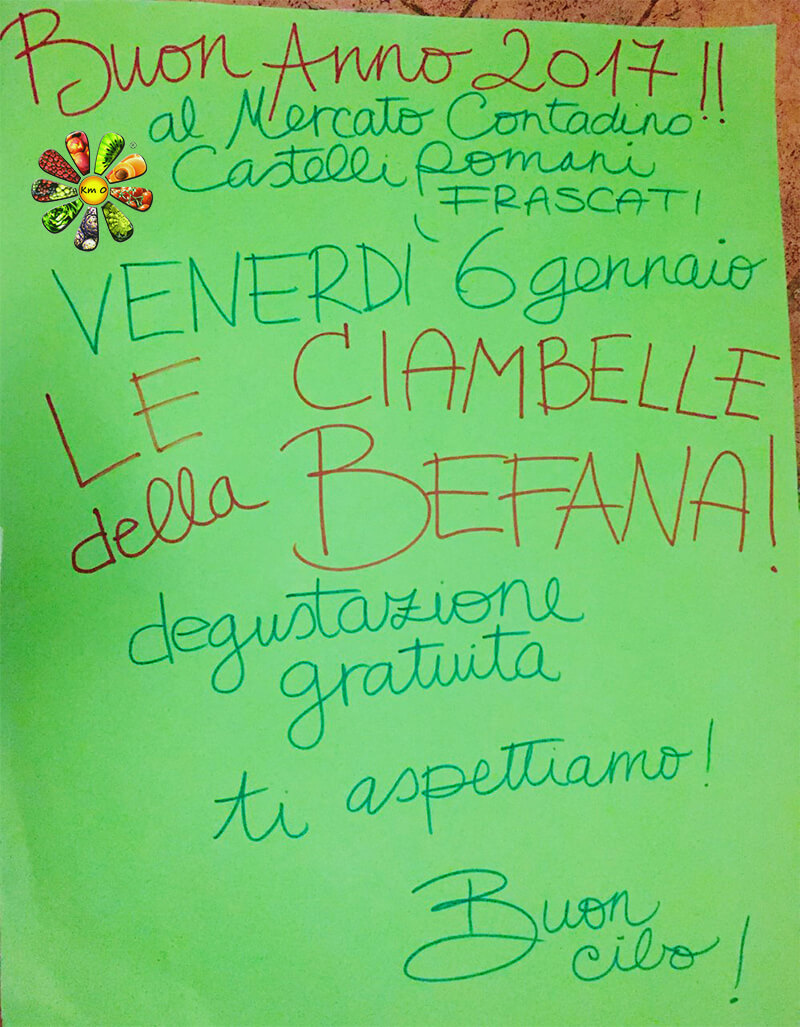 Buon Anno 2017!!
al Mercato Contadino
Castelli Romani
FRASCATI
Km 0
VENERDÌ 6 gennaio
LE CIAMBELLE
della BEFANA!
degustazione
gratuita
ti aspettiamo!
Buon
cibo!